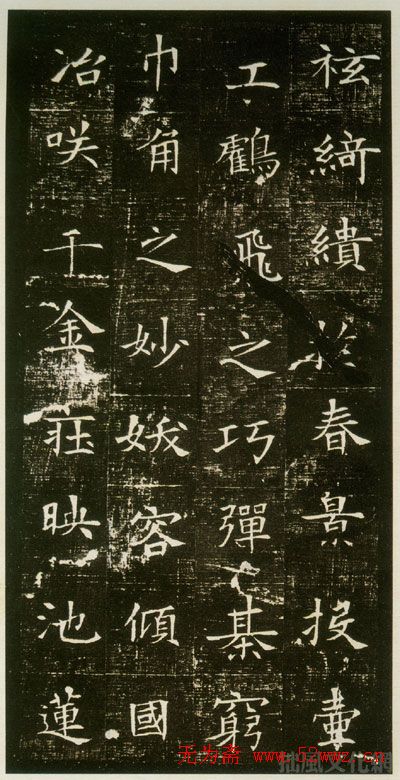 袨綺繢於春景投壺
工鶴飛之巧彈棊窮
巾角之妙娥容傾國
冶咲千金莊映池蓮
无为斋 www.52wwz.cn
拙風文化網